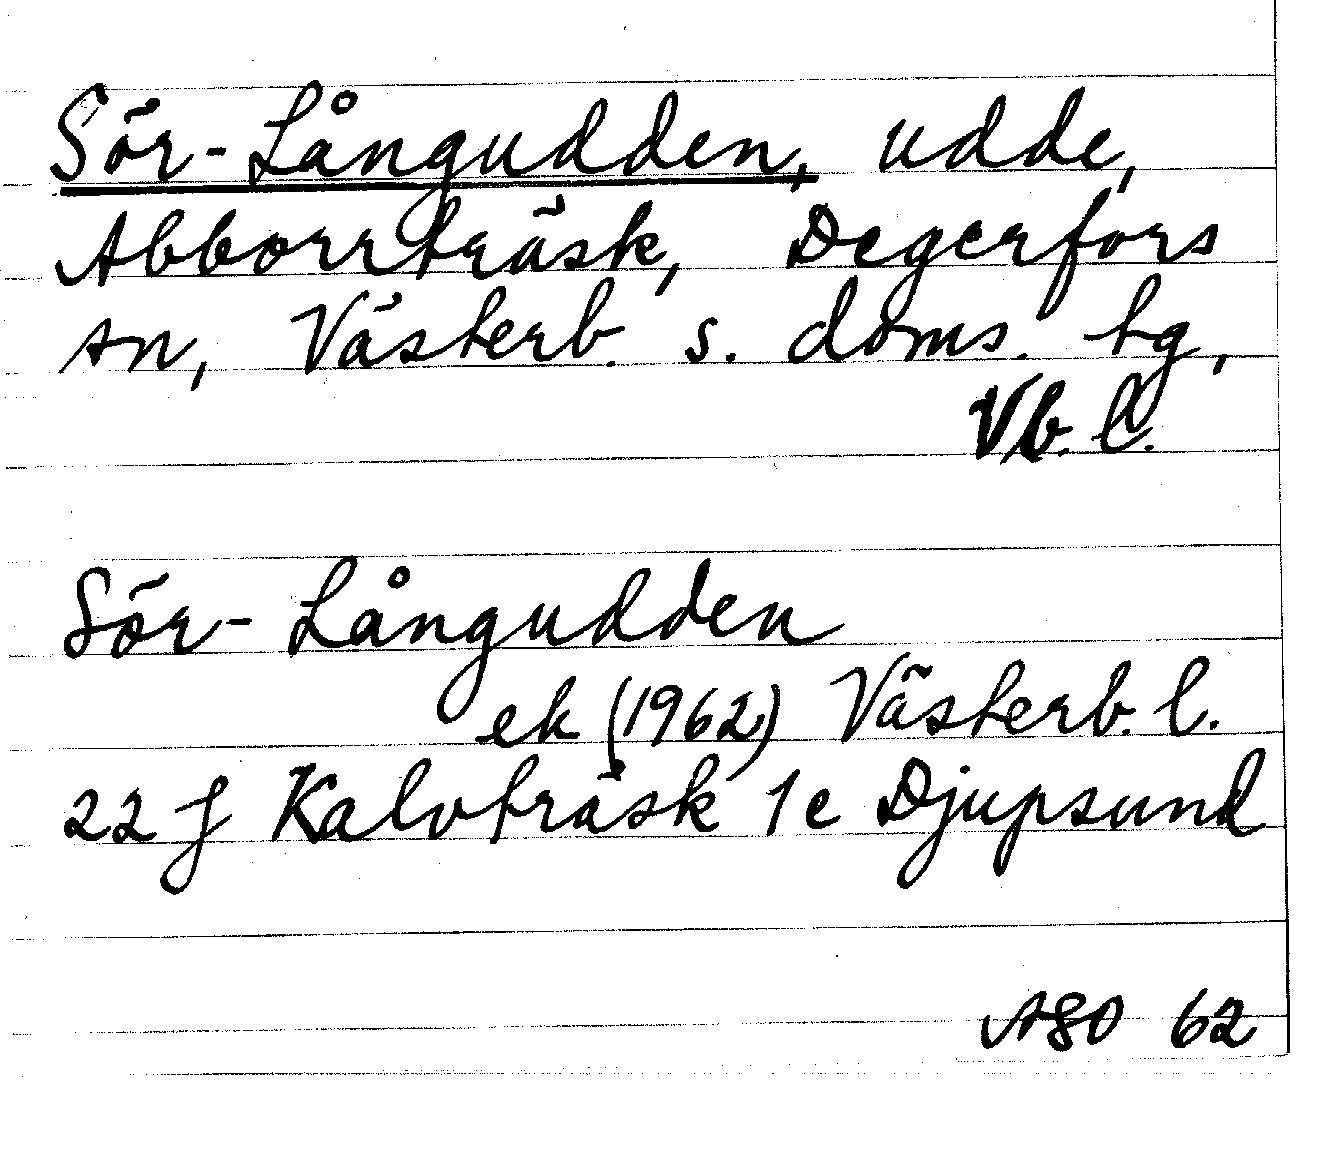 Sör-Långudden, udde,
Abborrträsk, Degerfors
sn, Västerb. s. doms. tg,
Vb. l.
Sör-Långudden
ek (1962) Västerb. l.
22 J Kalvträsk 1e Djupsund
ASO 62